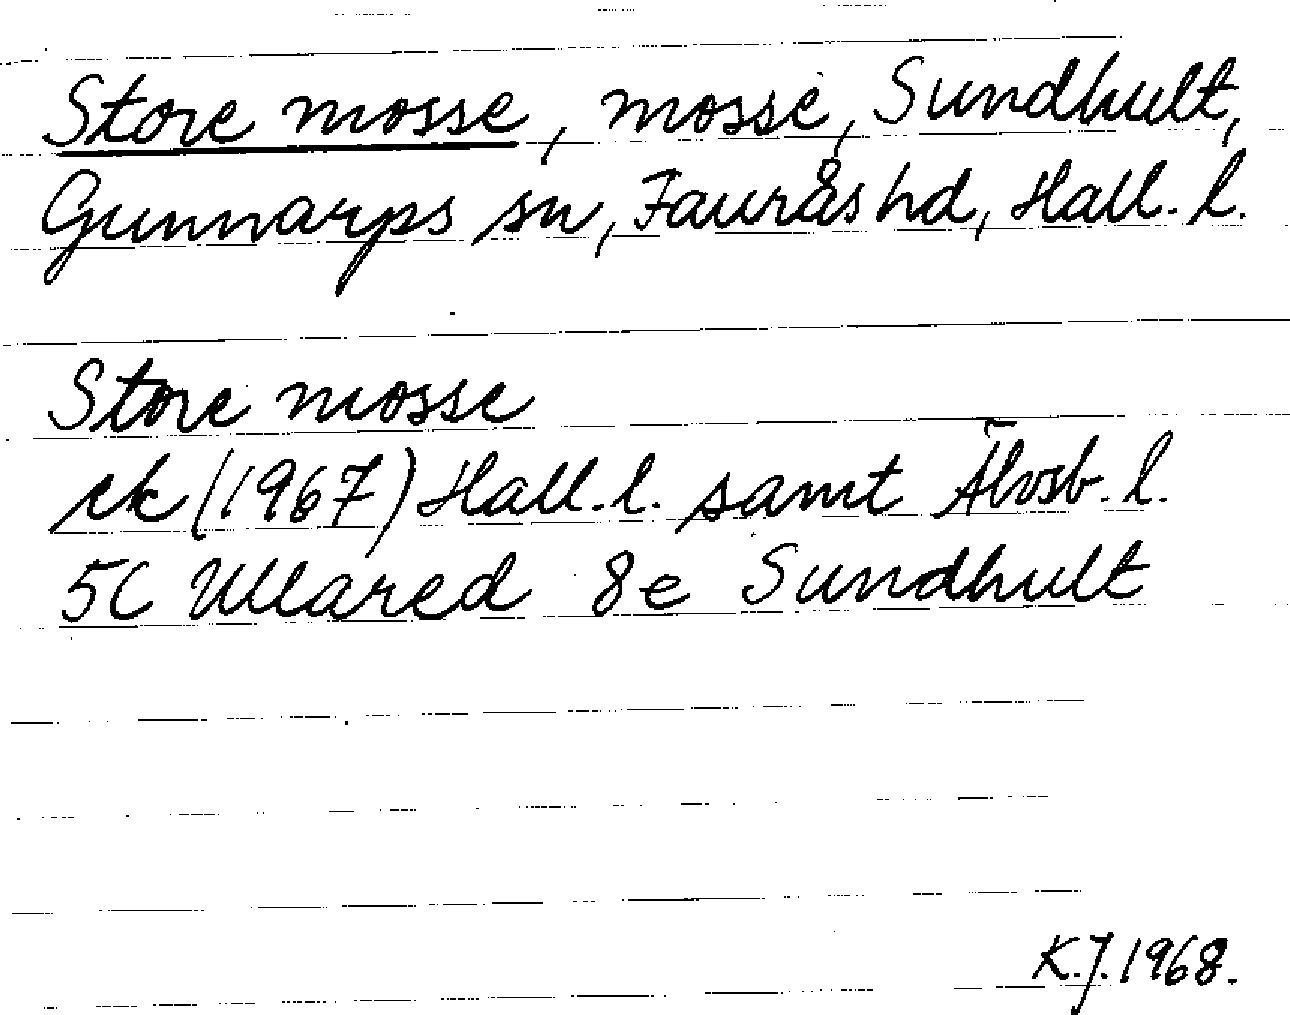 Store mosse, mosse, Sundhult,
Gunnarps sn, Faurås hd, Hall. l.
Store mosse
ek (1967) Hall. l. samt Älvsb. l.
5C Ullared 8e Sundhult
K.J. 1968.